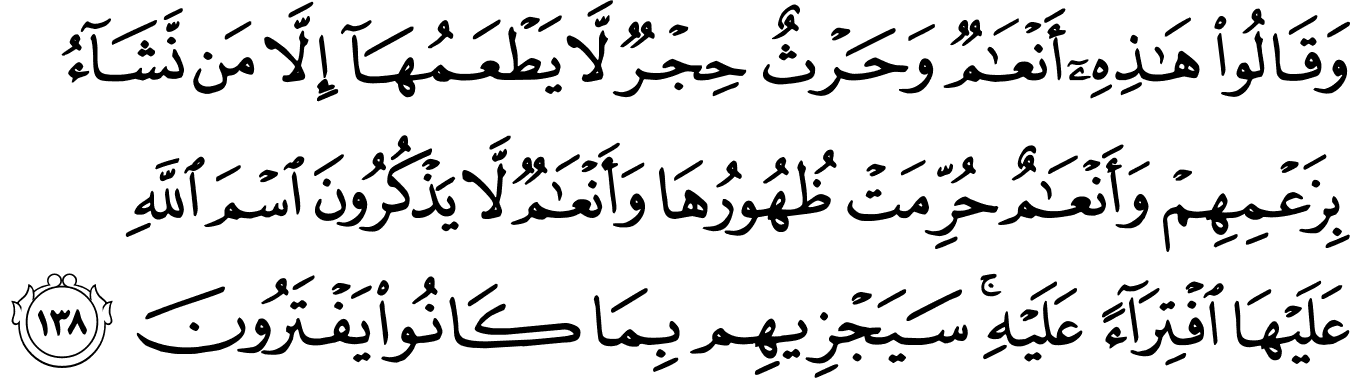 وَقَالُوا۟ هَـٰذِهِۦٓ أَنْعَـٰمٌ وَحَرْثٌ حِجْرٌ لَّا يَطْعَمُهَآ إِلَّا مَن نَّشَآءُ
بِزَعْمِهِمْ وَأَنْعَـٰمٌ حُرِّمَتْ ظُهُورُهَا وَأَنْعَـٰمٌ لَّا يَذْكُرُونَ ٱسْمَ ٱللَّهِ
عَلَيْهَا ٱفْتِرَآءً عَلَيْهِ ۚ سَيَجْزِيهِم بِمَا كَانُوا۟ يَفْتَرُونَ ١٣٨